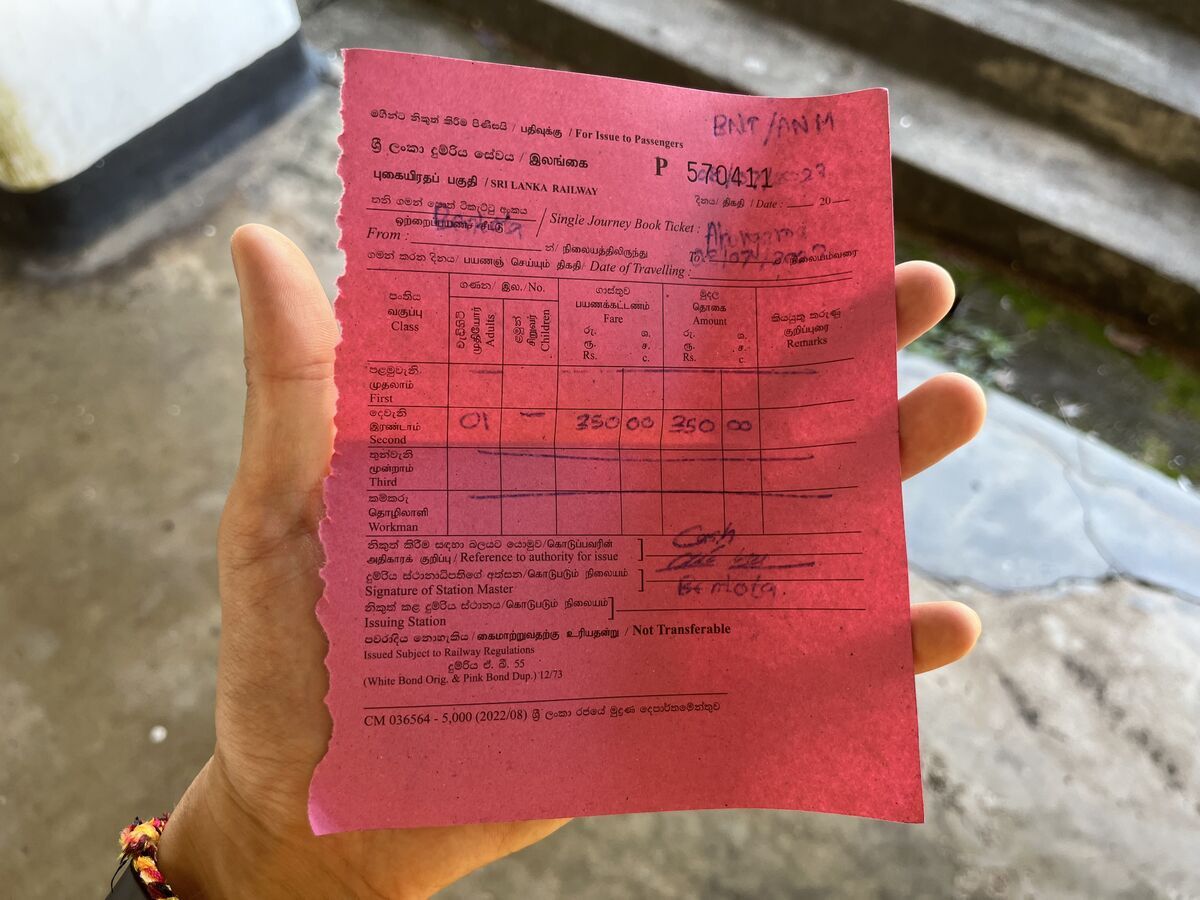 මගීන්ට නිකුත් කිරීම පිණිසයි / பதிவுக்கு / For Issue to Passengers
BNT/ANM
ශ්‍රී ලංකා දුම්රිය සේවය / இலங்கை
P 570411
புகையிரதப் பகுதி / SRI LANKA RAILWAY
දිනය/ திகதி / Date : 20
තනි ගමන් පොත් ටිකැට්ටු අංකය
ஒற்றைப்பயணச் சீட்டு / Single Journey Book Ticket :
From : Bentota න්/ நிலையத்திலிருந்து To ට நிலையம்வரை
ගමන් කරන දිනය/ பயணஞ் செய்யும் திகதி / Date of Travelling :
පංතිය வகுப்பு Class
ගණන/ இல./No.
වැඩිහිටි முதியோர் Adults
ළමුන් சிறுவர் Children
ගාස්තුව பயணக்கட்டணம் Fare
රු. ரூ. Rs. ශ. ச. c.
මුදල தொகை Amount
රු. ரூ. Rs. ශ. ச. c.
කියයුතු කරුණු குறிப்புரை Remarks
පළමුවැනි முதலாம் First
දෙවැනි இரண்டாம் Second 01 – 350 00 350 00
තුන්වැනි மூன்றாம் Third
කම්කරු தொழிலாளி Workman
නිකුත් කිරීම සඳහා බලයට යොමුව/கொடுப்பவரின்
அதிகாரக் குறிப்பு / Reference to authority for issue ] Cash
දුම්රිය ස්ථානාධිපතිගේ අත්සන/கொடுபடும் நிலையம்
Signature of Station Master ]
Bentota.
නිකුත් කළ දුම්රිය ස්ථානය/கொடுபடும் நிலையம்
Issuing Station ]
පවරාදිය නොහැකිය / கைமாற்றுவதற்கு உரியதன்று / Not Transferable
Issued Subject to Railway Regulations
දුම්රිය ඒ. බී. 55
(White Bond Orig. & Pink Bond Dup.) 12/73
CM 036564 - 5,000 (2022/08) ශ්‍රී ලංකා රජයේ මුද්‍රණ දෙපාර්තමේන්තුව